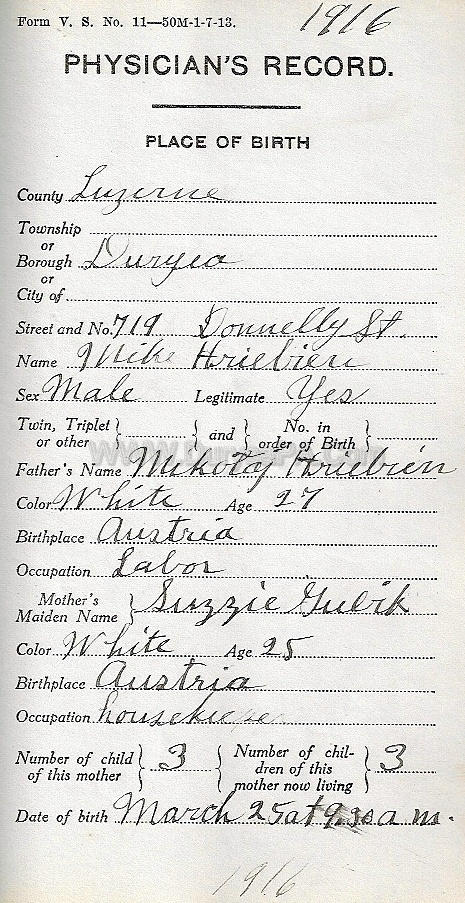 Form V. S. No. 11—50M-1-7-13.
1916
PHYSICIAN'S RECORD.
PLACE OF BIRTH
County Luzerne
Township
or
Borough Duryea
or
City of
Street and No. 719 Donnelly St.
Name Mike Hriebien
Sex Male Legitimate Yes
Twin, Triplet or other } { and } No. in order of Birth {
Father's Name Mikolaj Hriebien
Color White Age 27
Birthplace Austria
Occupation Labor
Mother's Maiden Name } Suzzie Gulik
Color White Age 25
Birthplace Austria
Occupation housekieper
Number of child of this mother } 3 { Number of children of this mother now living } 3
Date of birth March 25 at 9.30 a m.
1916